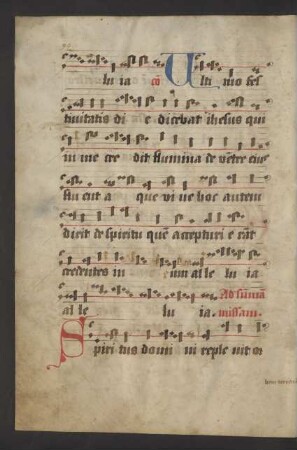 lu ia cō Ulti mo fes
tivitatis di e dicebat ihesus qui
in me cre dit flumina de ventre eius
flu ent a que vi ve hoc autem
dicit de spiritu quē accepturi e rāt
credentes in eum al le lu ia
al le lu ia. Ad sūmā
missam.
Spiri tus domi ni reple uit or